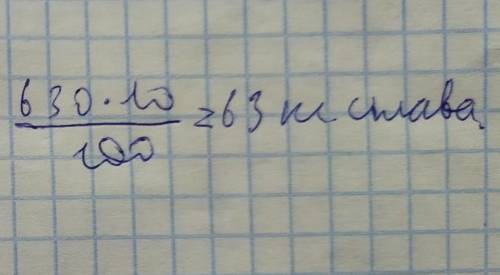 630·10
100
=63 кг. сплава.